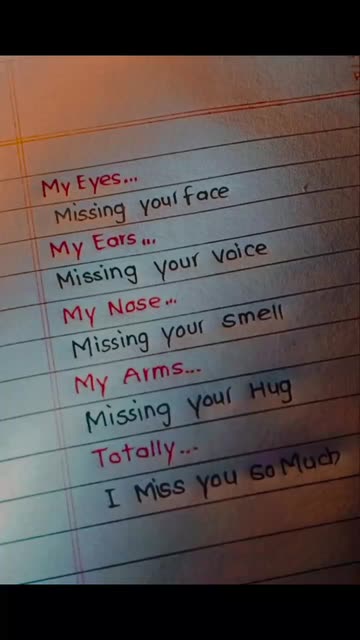 My Eyes...
Missing your face
My Ears...
Missing your voice
My Nose...
Missing your smell
My Arms...
Missing your Hug
Totally...
I Miss you so Much